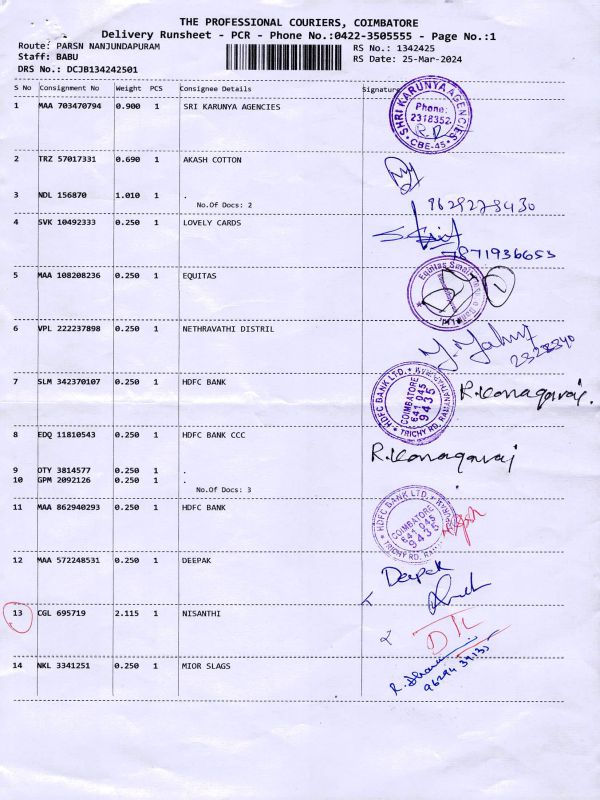 THE PROFESSIONAL COURIERS, COIMBATORE
Delivery Runsheet - PCR - Phone No.:0422-3505555 - Page No.:1
Route: PARSN NANJUNDAPURAM RS No.: 1342425
Staff: BABU RS Date: 25-Mar-2024
DRS No.: DCJB134242501
S No Consignment No Weight PCS Consignee Details Signature
1 MAA 703470794 0.900 1 SRI KARUNYA AGENCIES
SHRI KARUNYA AGENCIES
Phone:
2318352
CBE-45
2 TRZ 57017331 0.690 1 AKASH COTTON
3 NDL 156870 1.010 1 .
No.Of Docs: 2
9629273430
4 SVK 10492333 0.250 1 LOVELY CARDS
7871936653
5 MAA 108208236 0.250 1 EQUITAS
Equitas Small
1
6 VPL 222237898 0.250 1 NETHRAVATHI DISTRIL
2323340
7 SLM 342370107 0.250 1 HDFC BANK
HDFC BANK LTD.
COIMBATORE
641 045
9435
TRICHY RD,
R.Kanagaraj.
8 EDQ 11810543 0.250 1 HDFC BANK CCC
R.Kanagaraj
9 OTY 3814577 0.250 1 .
10 GPM 2092126 0.250 1 .
No.Of Docs: 3
11 MAA 862940293 0.250 1 HDFC BANK
HDFC BANK LTD.
COIMBATORE
641 045
9435
TRICHY RD,
12 MAA 572248531 0.250 1 DEEPAK
Deepak
13 CGL 695719 2.115 1 NISANTHI
DTL
14 NKL 3341251 0.250 1 MIOR SLAGS